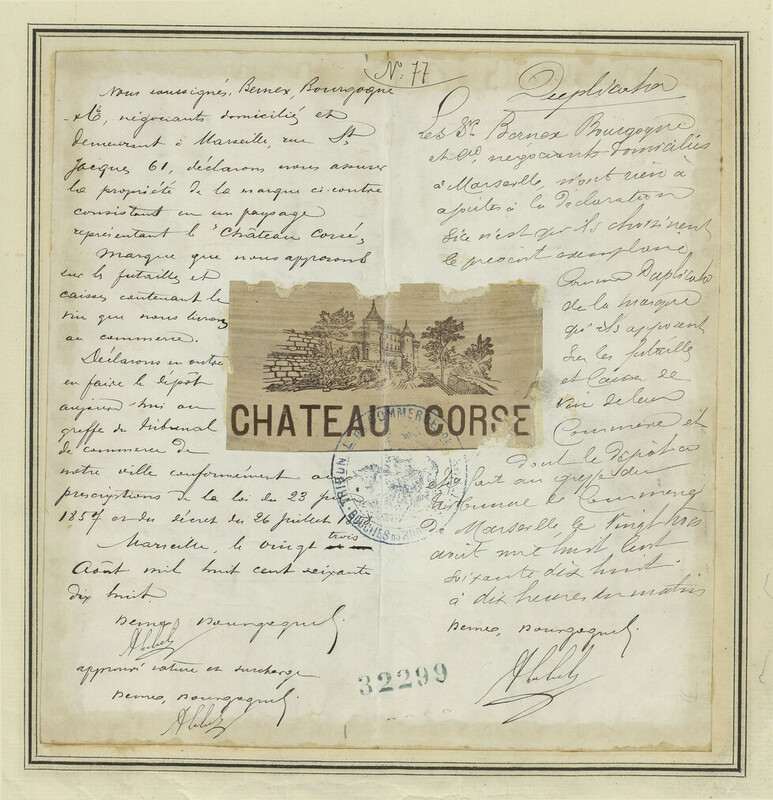 N: 77
Nous soussignés, Bernex, Bourgogne
& Cie, négociants domiciliés et
demeurant à Marseille, rue St
Jacques 61, déclarons nous assurer
la propriété de la marque ci-contre
consistant en un paysage
représentant le "Château Corse,
Marque que nous apposons
sur les futailles et
caisses contenant le
vin que nous livrons
au commerce.
Déclarons en outre
en faire le dépôt
aujourd'hui au
greffe du tribunal
de commerce de
notre ville conformément aux
prescriptions de la loi du 23 juin
1857 et du décret du 26 Juillet
Marseille, le vingt trois
Août mil huit cent soixante
dix huit.
Bernex, Bourgogne
approuvé rature et surcharge
Bernex, Bourgogne
CHATEAU CORSE
TRIBUNAL DE COMMERCE DE
BOUCHES DU RHONE
32299
Duplicata
Les Srs Bernex Bourgogne
et Cie, négociants domiciliés
à Marseille, n'ont rien à
ajouter à la déclaration
si ce n'est qu'ils choisissent
le présent exemplaire
Comme Duplicata
de la marque
qu'ils apposent
sur les futailles
et Caisses de
vin de leur
Commerce et
dont le dépôt a
été fait au greffe du
tribunal de Commerce
de Marseille le vingt trois
août mil huit cent
soixante dix huit
à dix heures du matin
Bernex, Bourgogne